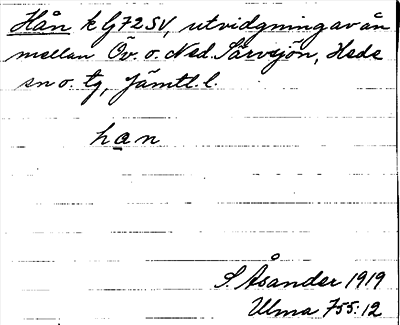 Hån k G72SV, utvidgning av ån
mellan Öv. o. Ned. Särvsjön, Hede
sn o. tg, Jämtl. l.
han
S. Åsander 1919
Ulma 755:12